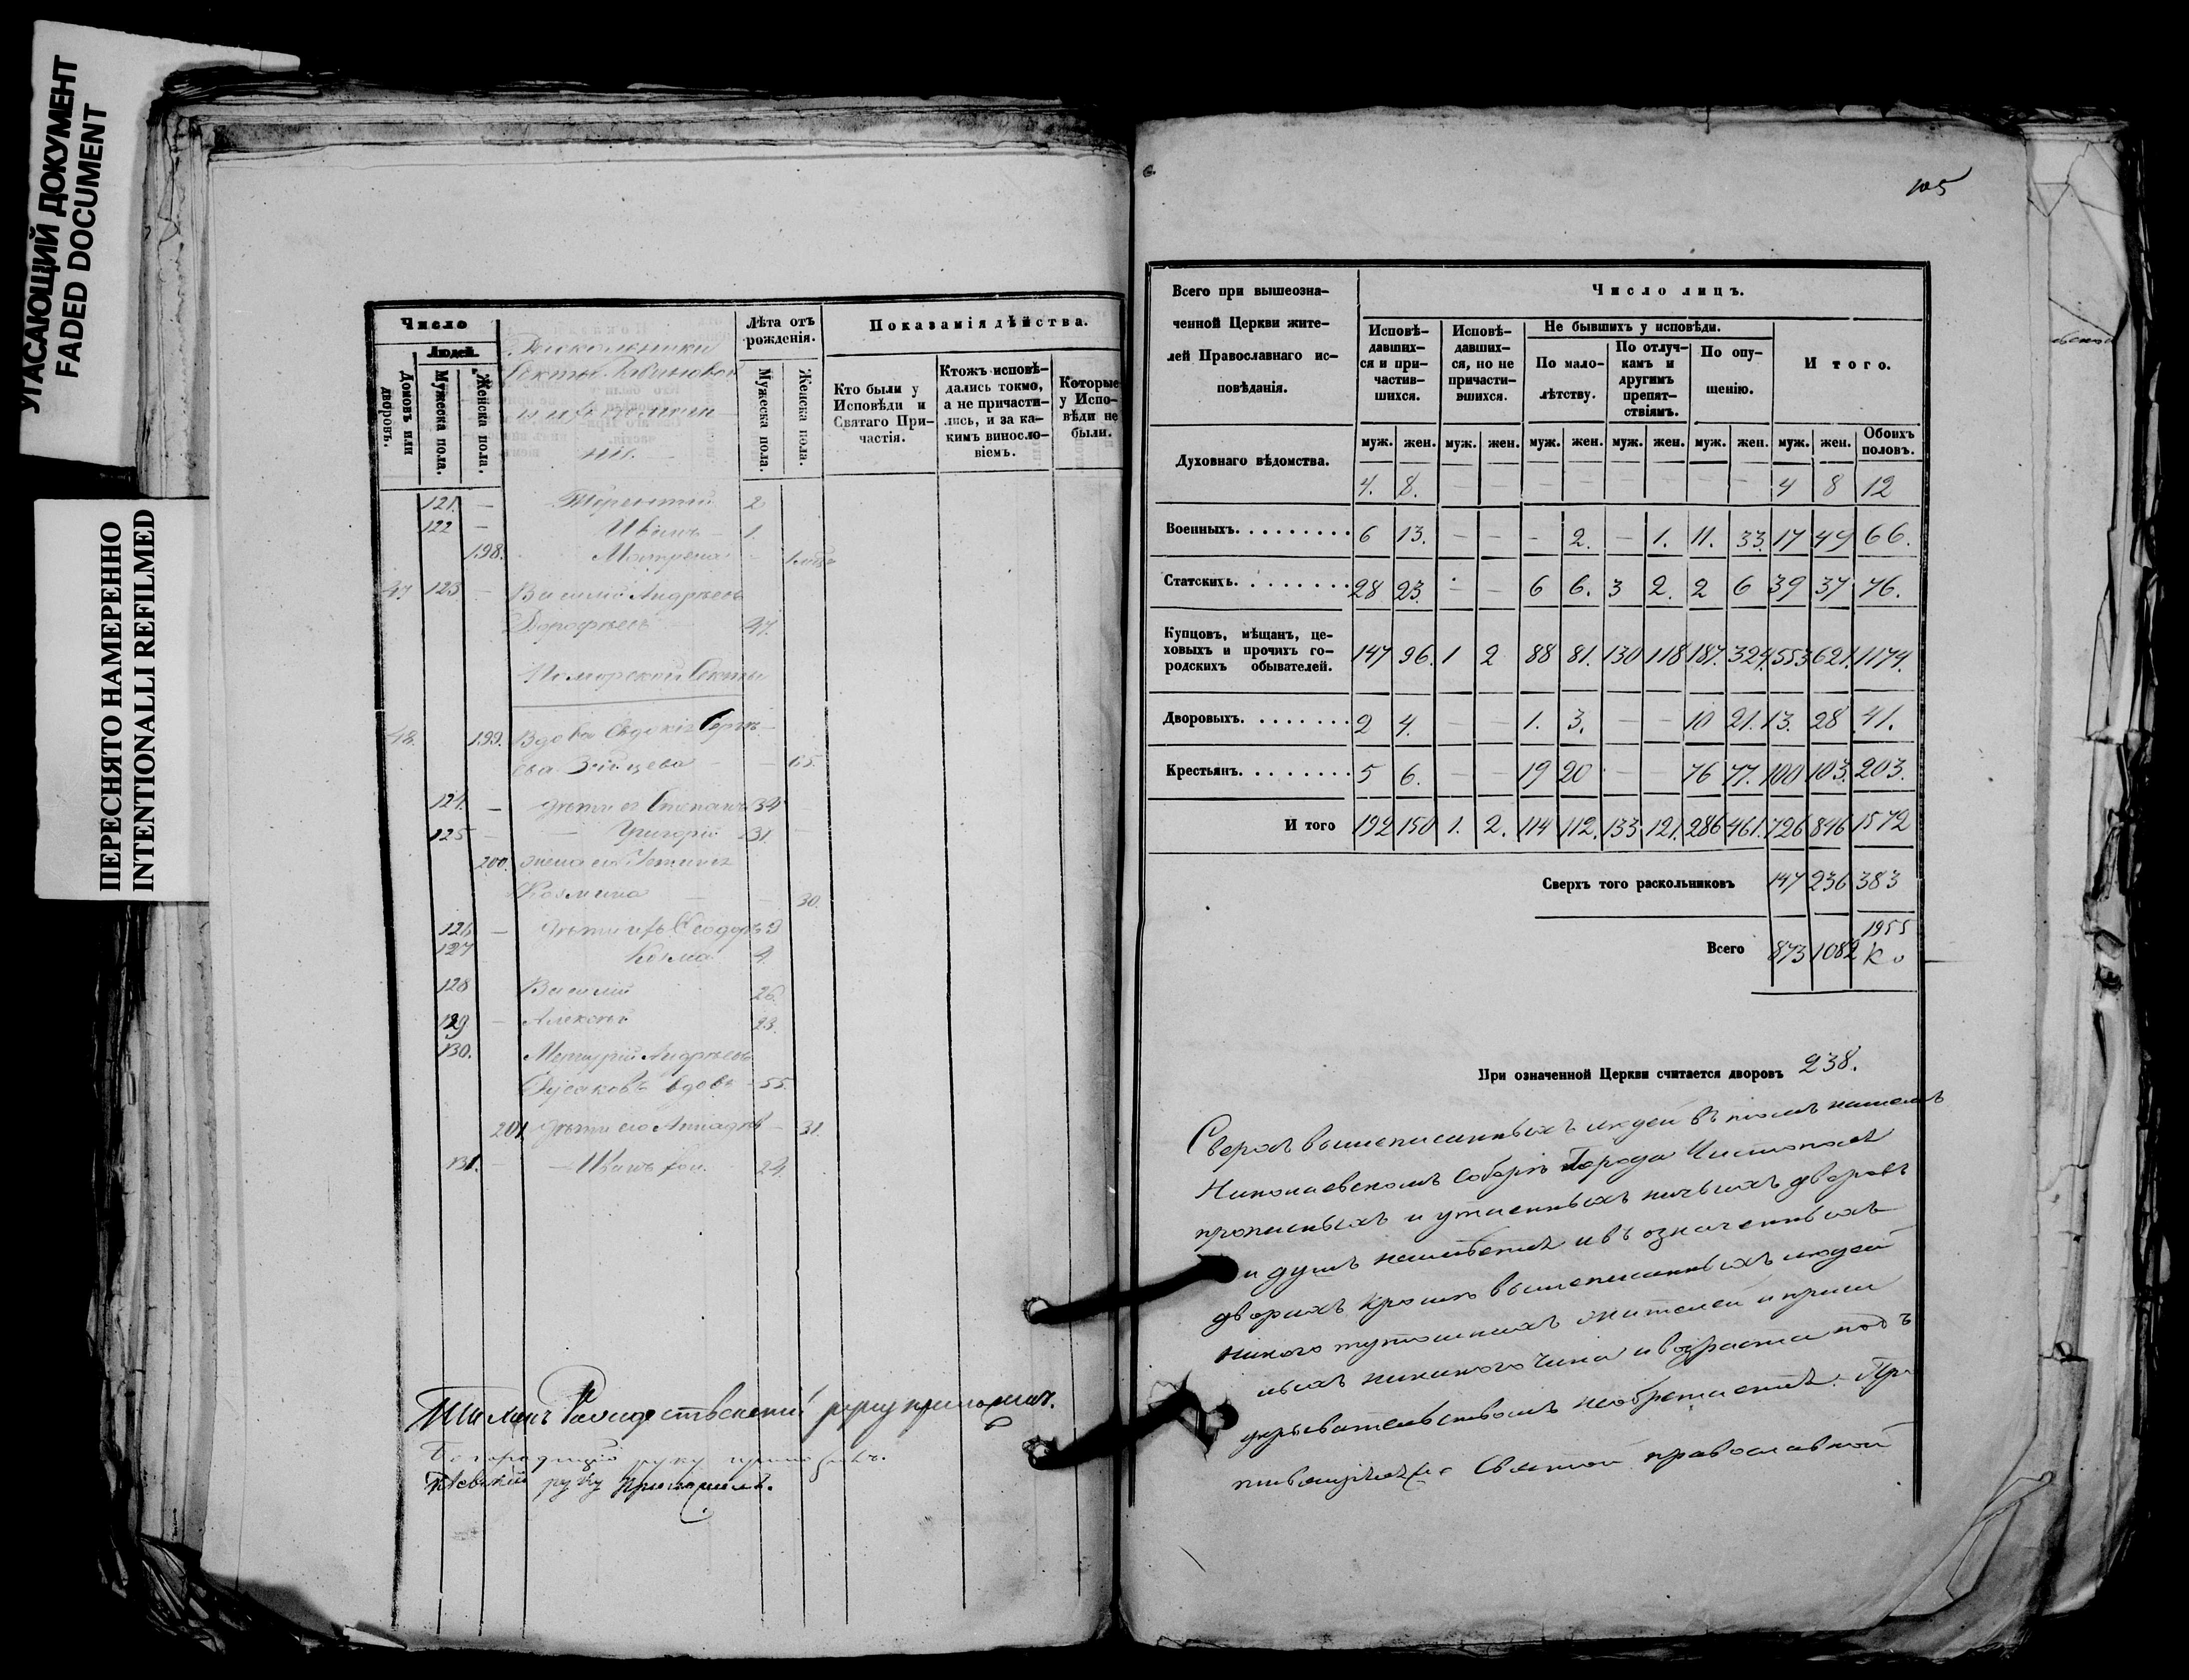 УГАСАЮЩИЙ ДОКУМЕНТ
FADED DOCUMENT
ПЕРЕСНЯТО НАМЕРЕННО
INTENTIONALLI REFILMED
Число
Людей.
Домовъ или дворовъ.
Мужеска пола.
Женска пола.
Раскольники
Секты
Лѣта отъ рожденія.
Мужеска пола.
Женска пола.
Показанія дѣйства.
Кто были у Исповѣди и Святаго Причастія.
Ктожъ исповѣдались токмо, а не причастились, и за какимъ винословіемъ.
Которые у Исповѣди не были.
121. — Терентий 2
122 — Иванъ — 1.
198. Матрена —
47 123 — Василий Андреевъ
Дорофеевъ 47.
Поморской Секты
48. 199. Вдова Евдокія
Зайцева — — 65.
124. — дѣти ея Степанъ 34
125 — — Григорій 31.
200. жена его
Козмина — — 30.
126 — дѣти ихъ Феодоръ 9
127 Козма 4.
128 Василій 26.
129 — Алексѣй 23.
130. Меркурій Андреевъ
Русаковъ вдовъ — 55.
201 дѣти его — 31.
131. — Иванъ 24.
Рождественскій руку приложилъ.
руку приложилъ.
руку приложилъ.
105
Всего при вышеозначенной Церкви жителей Православнаго исповѣданія.
Число лицъ.
Исповѣдавшихся и причастившихся.
Исповѣдавшихся, но не причастившихся.
Не бывшихъ у исповѣди.
По малолѣтству.
По отлучкамъ и другимъ препятствіямъ.
По опущенію.
Итого.
муж. жен. муж. жен. муж. жен. муж. жен. муж. жен. муж. жен. Обоихъ половъ.
Духовнаго вѣдомства. 4. 8. — — — — — — — — 4 8 12
Военныхъ. 6 13. — — — 2. — 1. 11. 33. 17 49 66.
Статскихъ. 28 23. — — 6 6. 3 2. 2 6 39 37 76.
Купцовъ, мѣщанъ, цеховыхъ и прочихъ городскихъ обывателей. 147 96. 1 2 88 81. 130 118 187. 324. 553 621. 1174.
Дворовыхъ. 2 4. — — 1. 3. — — 10 21. 13. 28 41.
Крестьянъ. 5 6. — — 19 20 — — 76 77. 100 103. 203.
Итого 192 150 1. 2. 114 112. 133 121. 286 461. 726 846 1572
Сверхъ того раскольниковъ 147 236 383
1955
Всего 873 1082
При означенной Церкви считается дворовъ 238.
Сверхъ вышеписанныхъ людей въ томъ нашемъ
Николаевскомъ Соборѣ Города Чистополя
прописныхъ и утаенныхъ ничьихъ дворовъ
и душъ неимѣется и въ означенныхъ
дворахъ кромѣ вышеписанныхъ людей
никого тутошнихъ жителей и пришлыхъ никакого чина и возраста подъ
укрывательствомъ необретается. При
Святой православной